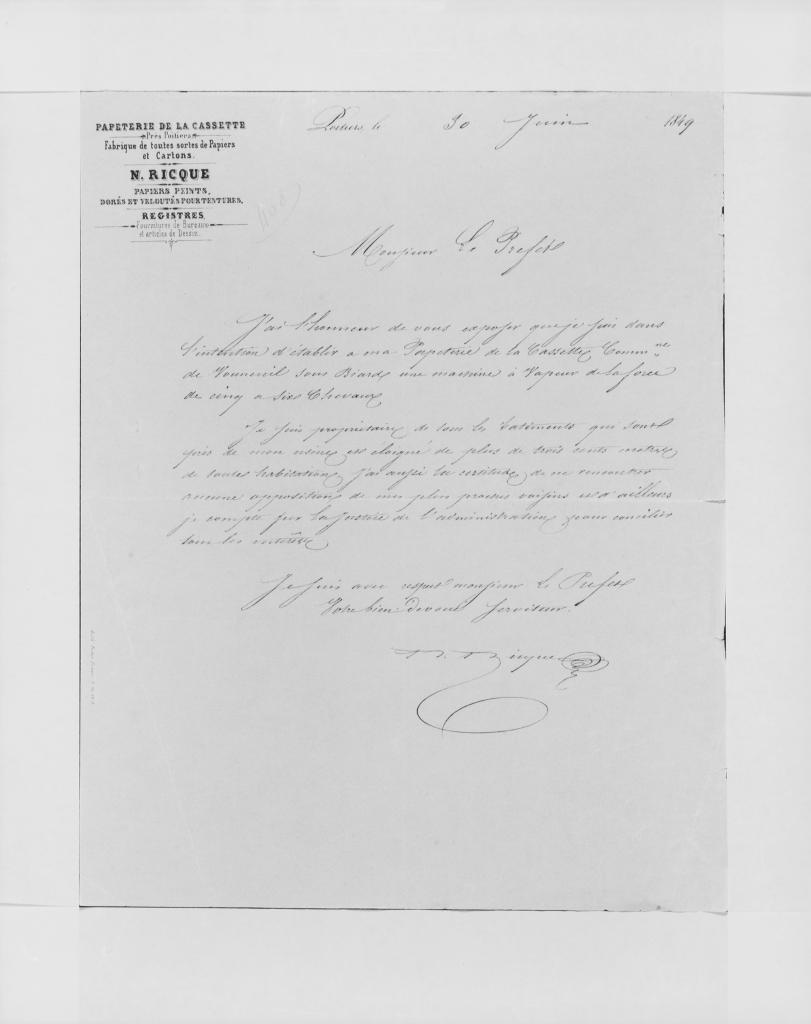 PAPETERIE DE LA CASSETTE
Près Poitiers
Fabrique de toutes sortes de Papiers
et Cartons.
N. RICQUE
PAPIERS PEINTS,
DORÉS ET VELOUTÉS POUR TENTURES,
REGISTRES,
Fournitures de Bureaux
et articles de Dessin.
Poitiers, le 30 Juin 1849
Monsieur Le Prefet
J'ai l'honneur de vous exposer que je suis dans
l'intention d'établir a ma Papeterie de la Cassette Comm ne
de Vouneuil sous Biard une machine à Vapeur de la force
de cinq a six Chevaux
Je suis propriétaire de tous les batiments qui sont
près de mon usine est éloigné de plus de trois cents metres
de toutes habitation, j'ai aussi la certitude de ne rencontrer
aucune opposition de mes plus proches voisins et d'ailleurs
je compte sur la justice de l'administration pour concilier
tous les intérêts
Je suis avec respect monsieur Le Prefet
Votre bien devoué serviteur.
N. Ricque